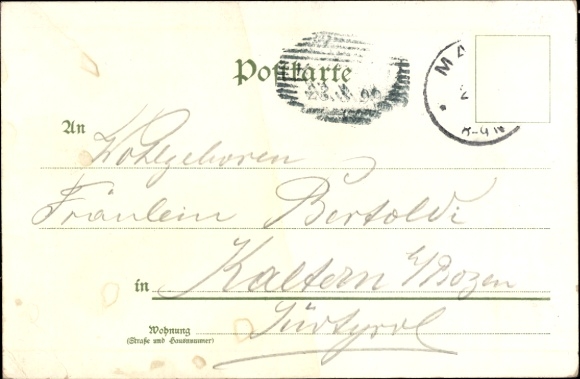 Postkarte
MA
An Wohlgeboren
Fräulein Bertoldi
in Kaltern b/Bozen
Wohnung
(Straße und Hausnummer)
Südtyrol